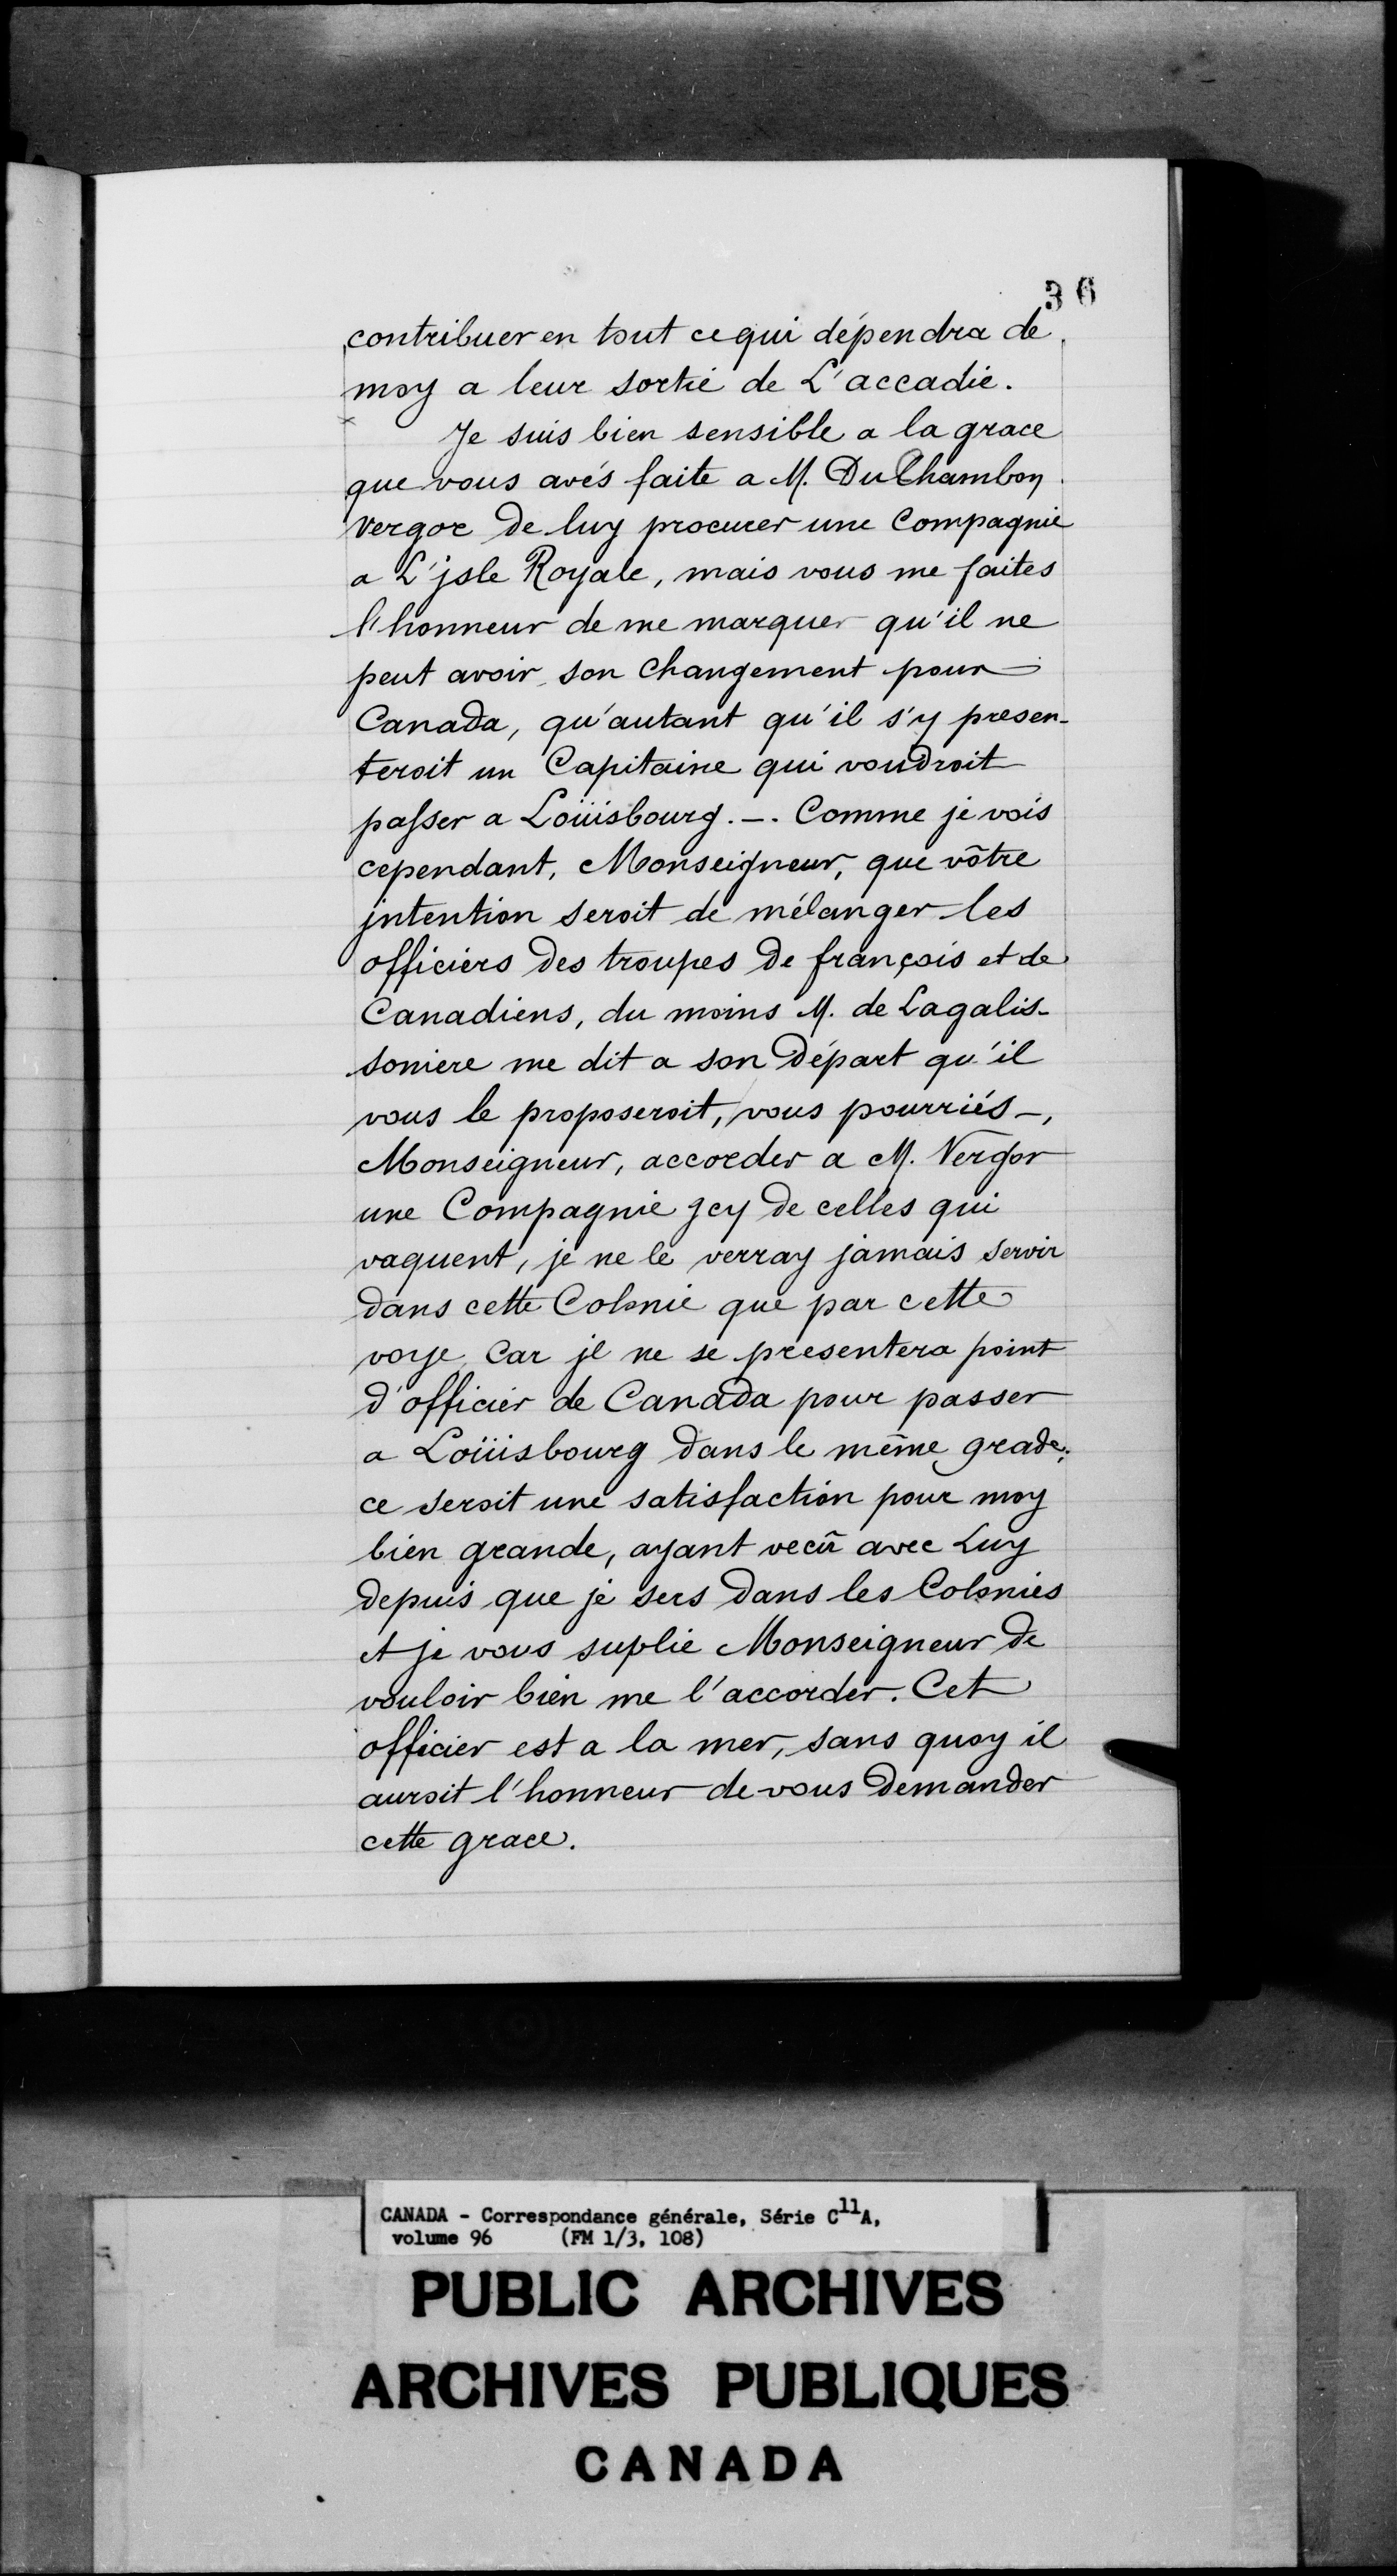 36
contribuer en tout ce qui dépendra de
moy a leur sortie de L'accadie.
Je suis bien sensible a la grace
que vous avés faite a M. DuChambon
Vergor de luy procurer une Compagnie
a L'jsle Royale, mais vous me faites
l'honneur de me marquer qu'il ne
peut avoir son changement pour
Canada, qu'autant qu'il s'y presen-
teroit un Capitaine qui voudroit
passer a Loüisbourg. —. Comme je vois
cependant, Monseigneur, que vôtre
jntention seroit de mélanger les
officiers des troupes de françois et de
Canadiens, du moins M. de Lagalis-
soniere me dit a son Départ qu'il
vous le proposeroit, vous pourriés —,
Monseigneur, accorder a M. Vergor
une Compagnie jcy de celles qui
vaquent, je ne le verray jamais servir
dans cette Colonie que par cette
voye, Car jl ne se presentera point
d'officier de Canada pour passer
a Loüisbourg dans le même grade;
ce seroit une satisfaction pour moy
bien grande, ayant vecû avec Luy
depuis que je sers dans les Colonies
et je vous suplie Monseigneur de
vouloir bien me l'accorder. Cet
officier est a la mer, sans quoy il
auroit l'honneur de vous demander
cette grace.
CANADA - Correspondance générale, Série C11A,
volume 96 (FM 1/3, 108)
PUBLIC ARCHIVES
ARCHIVES PUBLIQUES
CANADA